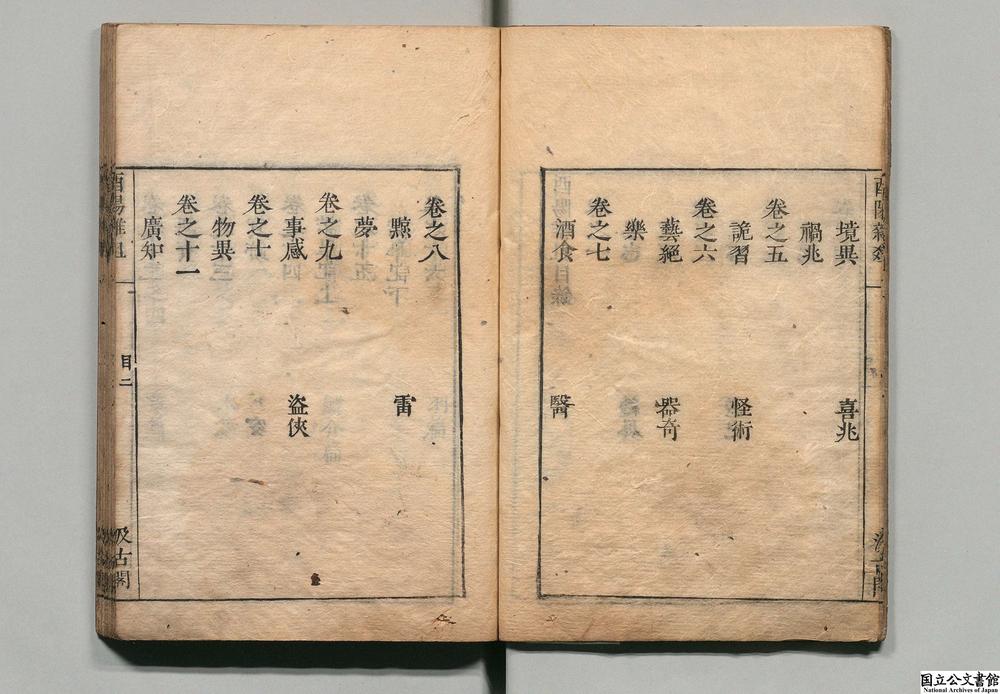 境異 喜兆
禍兆
卷之五
詭習 怪術
卷之六
藝絕 器奇
樂
卷之七
酒食 醫
卷之八
黥 雷
夢
卷之九
事感 盜俠
卷之十
物異
卷之十一
廣知
酉陽雜俎
目二
汲古閣
国立公文書館
National Archives of Japan